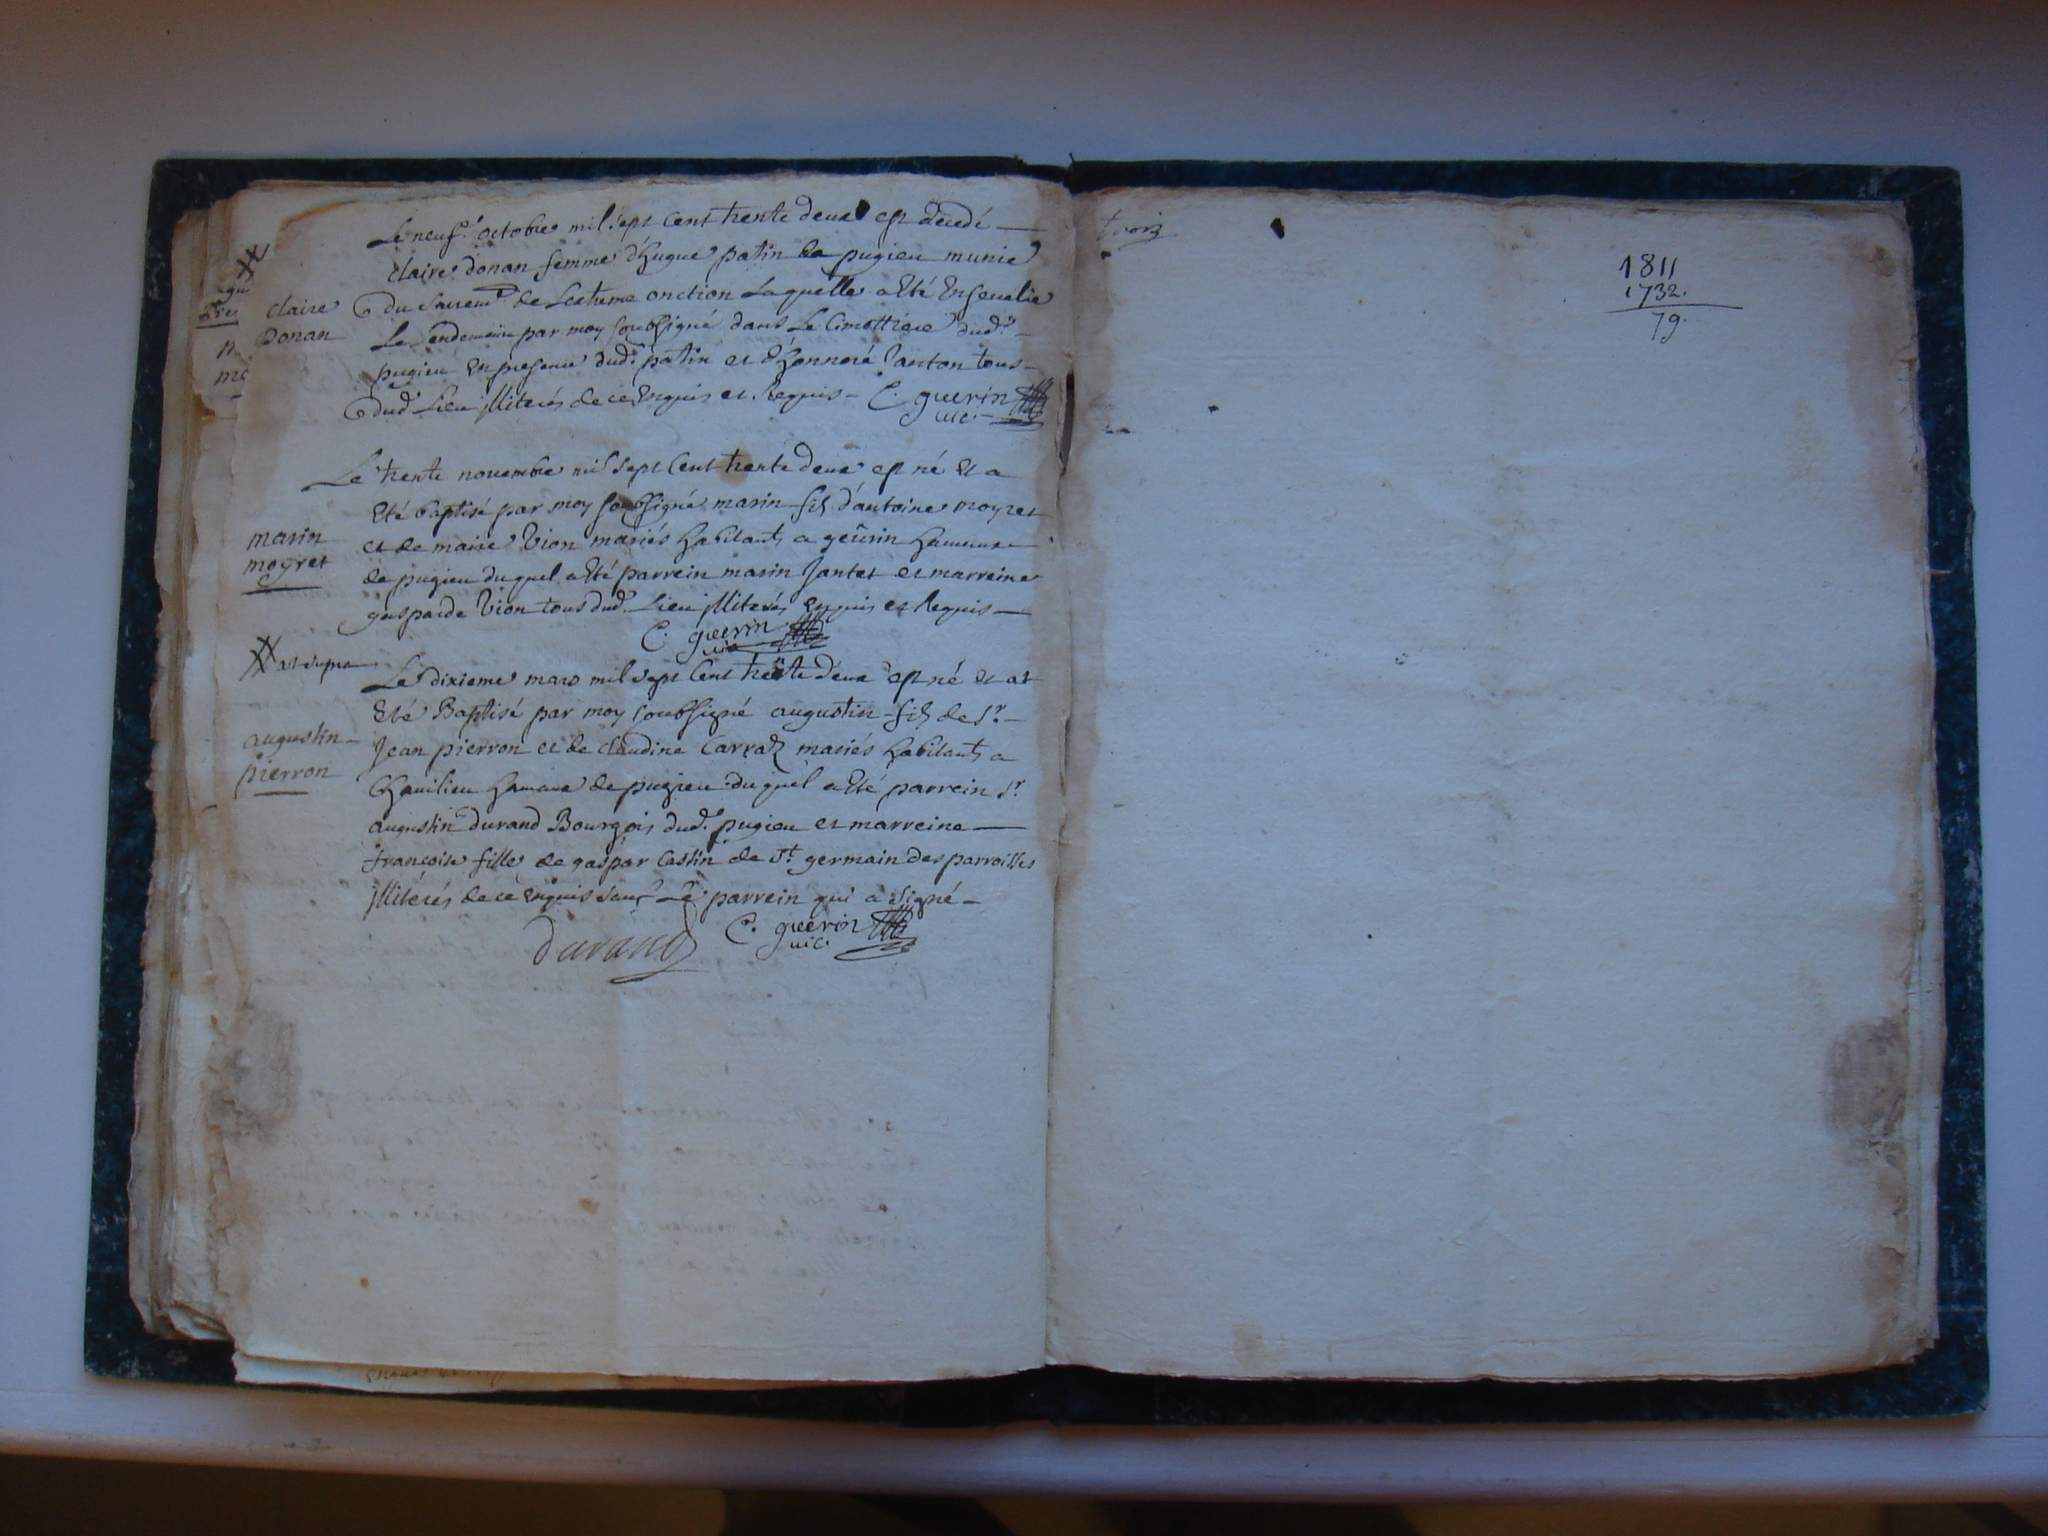 Le neuf.e octobre mil sept Cent trente deux est décedé
Claire donan femme d'hugue patin de pugieu munie
Claire
Donan
du Sacrem.t de Lextreme onction Laquelle a Eté Ensevelie
Le Lendemain par moy soubsigné dans Le Cimottiére dud.t
pugieu En presence dud.t patin et d'honnoré Janton tous
dud.t Lieu illiterés de ce Enquis et Requis
C. guerin
vic.
Le trente novembre mil sept Cent trente deux est né Et a
Eté baptisé par moy soubsigné marin fils d'antoine moyret
marin
moyret
et de marie Vion mariés habitants a geûrin hameau
de pugieu duquel a Eté parrein marin Jantet et marreine
gasparde Vion tous dud.t Lieu illiterés Enquis et Requis
C. guerin
vic
ut supra
Le dixieme mars mil sept Cent trente deux est né et at
Eté Baptisé par moy soubsigné augustin fils de S.r
augustin
pierron
Jean pierron et de claudine Carraz mariés habitants a
Chavilieu hameau de pugieu duquel a Eté parrein S.r
augustin durand Bourgois dud.t pugieu et marreine
francoise fille de gaspar Castin de S.t germain des parroisses
illiterés de ce Enquis sauf Le parrein qui a signé
durand
C. guerin
vic.
trois
1811
1732.
79.